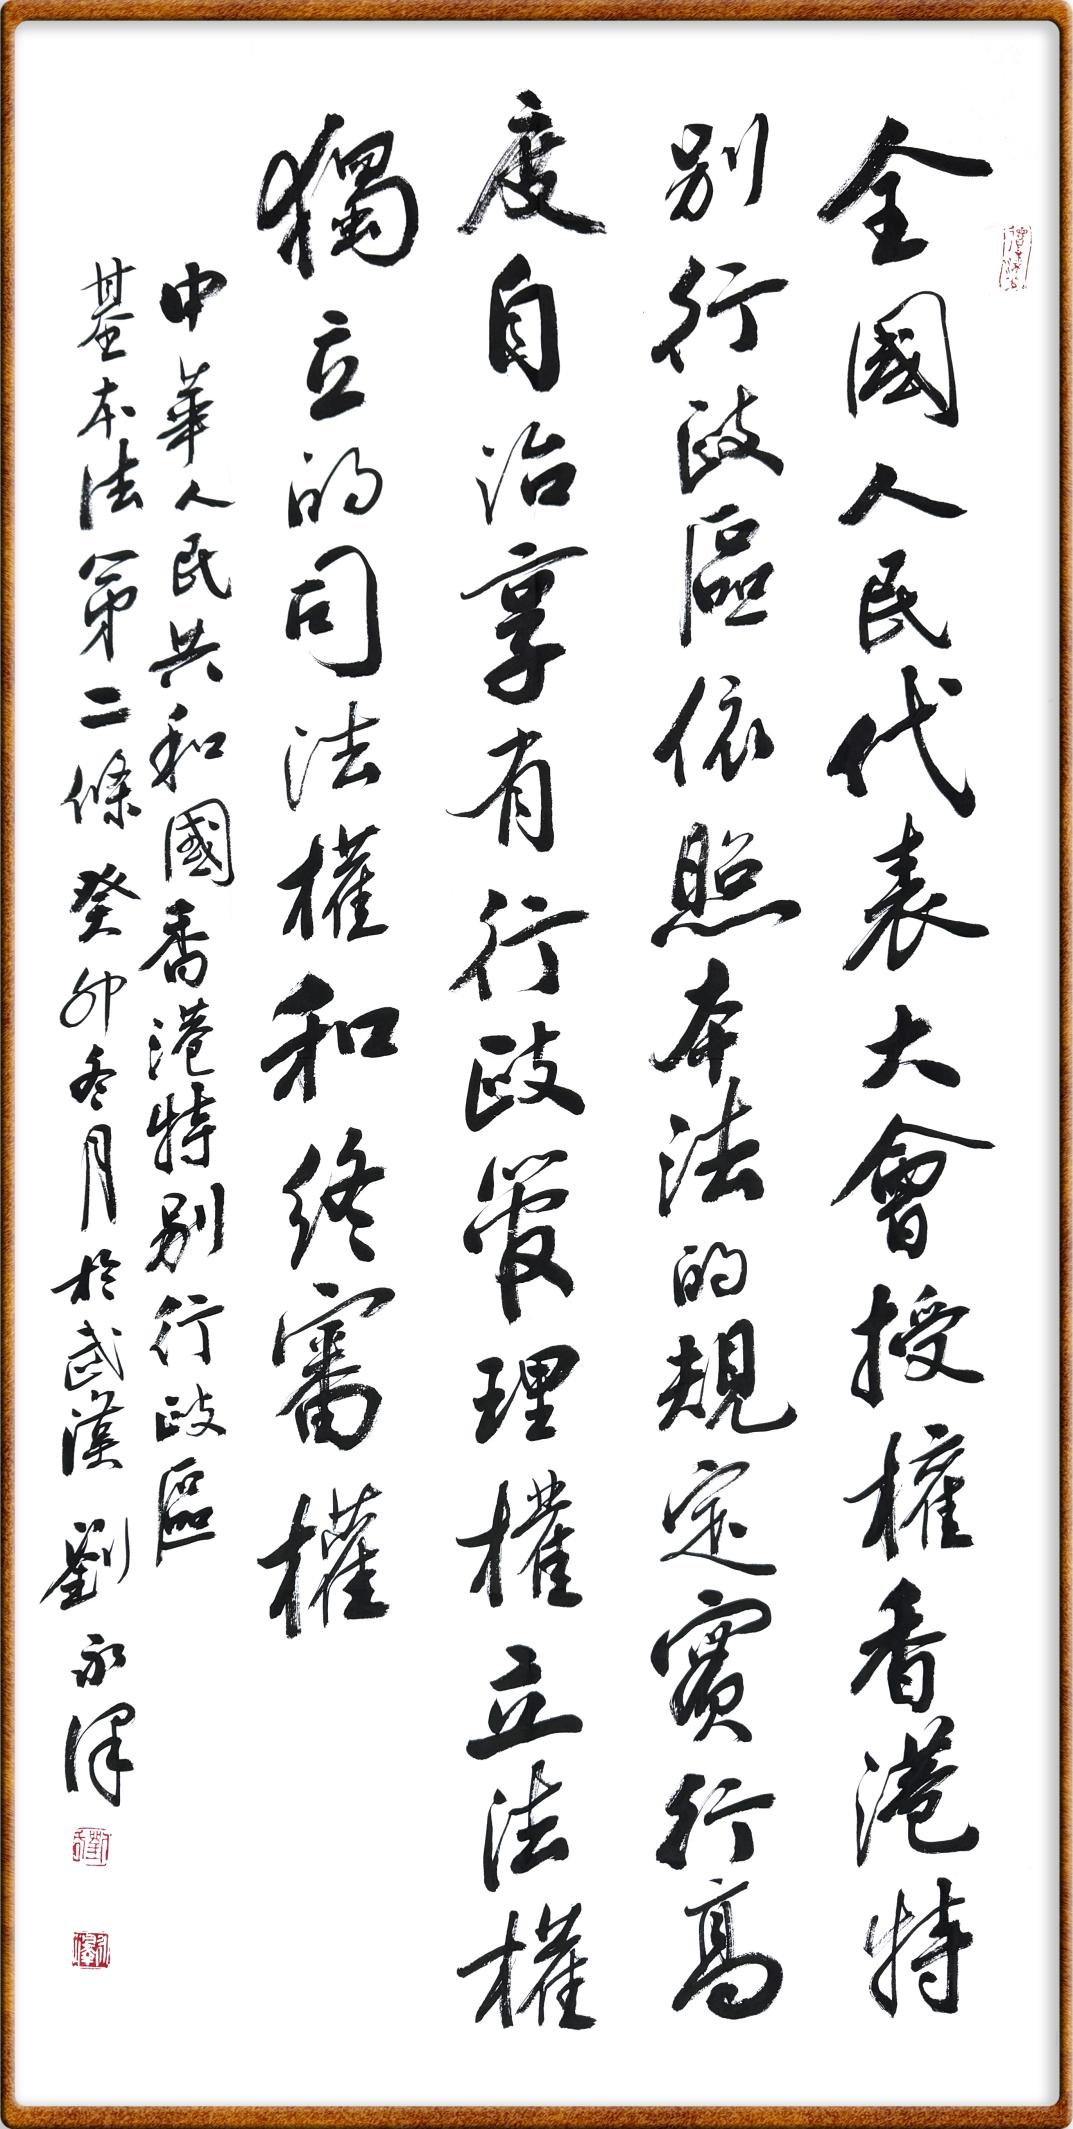 全國人民代表大會授權香港特
别行政區依照本法的規定實行高
度自治享有行政管理權立法權
獨立的司法權和終審權
中華人民共和國香港特别行政區
基本法第二條 癸卯冬月於武漢 劉永澤